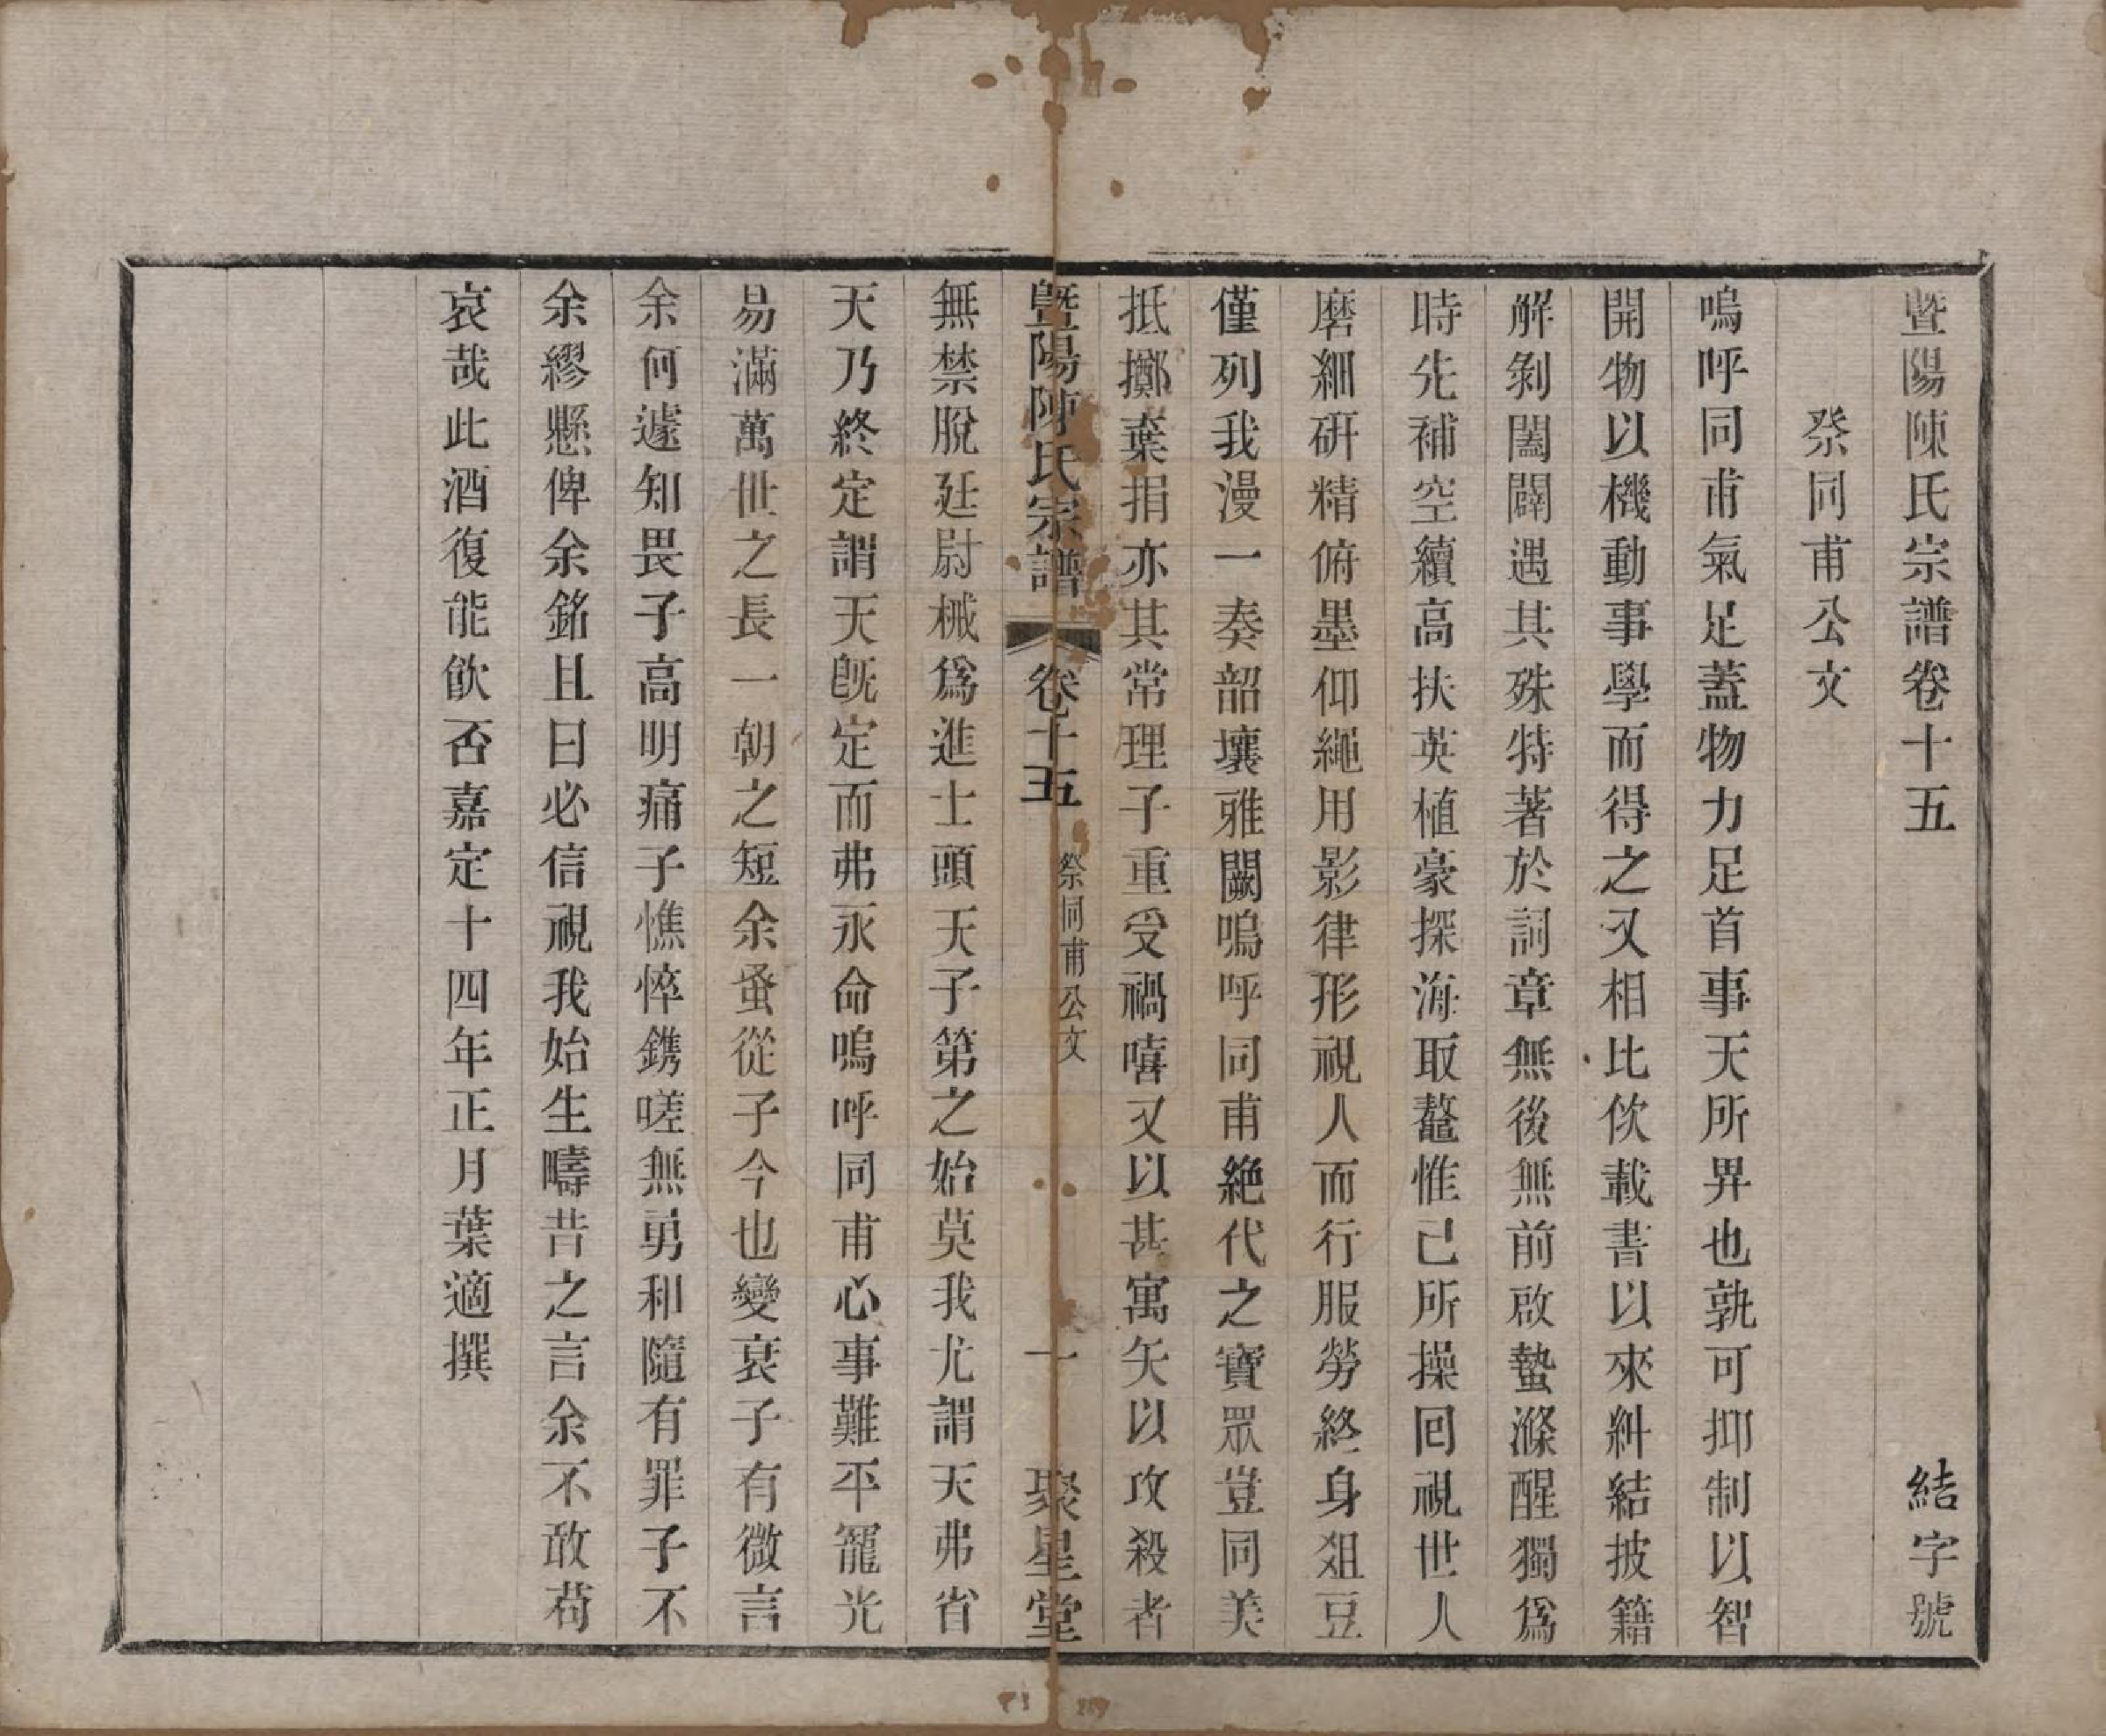 暨陽陳氏宗譜卷十五　結字號
祭同甫公文
嗚呼同甫氣足蓋物力足首事天所畀也孰可抑制以智
開物以機動事學而得之又相比佽載書以來糾結披籍
解剝闔闢遇其殊特著於詞章無後無前啟蟄滌醒獨爲
時先補空續高扶英植豪探海取鼇惟己所操回視世人
磨細研精俯墨仰繩用影律形視人而行服勞終身俎豆
僅列我漫一奏韶壞雅闕嗚呼同甫絶代之寶眾豈同美
抵擲棄捐亦其常理子重受禍嘻又以甚寓矢以攻殺者
暨陽陳氏宗譜　卷十五　祭同甫公文　一　聚星堂
無禁脫廷尉械爲進士頭天子第之始莫我尤謂天弗省
天乃終定謂天旣定而弗永命嗚呼同甫心事難平寵光
易滿萬世之長一朝之短余蚤從子今也變衰子有微言
余何遽知畏子高明痛子憔悴鐫嗟無勇和隨有罪子不
余繆懸俾余銘且曰必信視我始生疇昔之言余不敢苟
哀哉此酒復能飲否嘉定十四年正月葉適撰